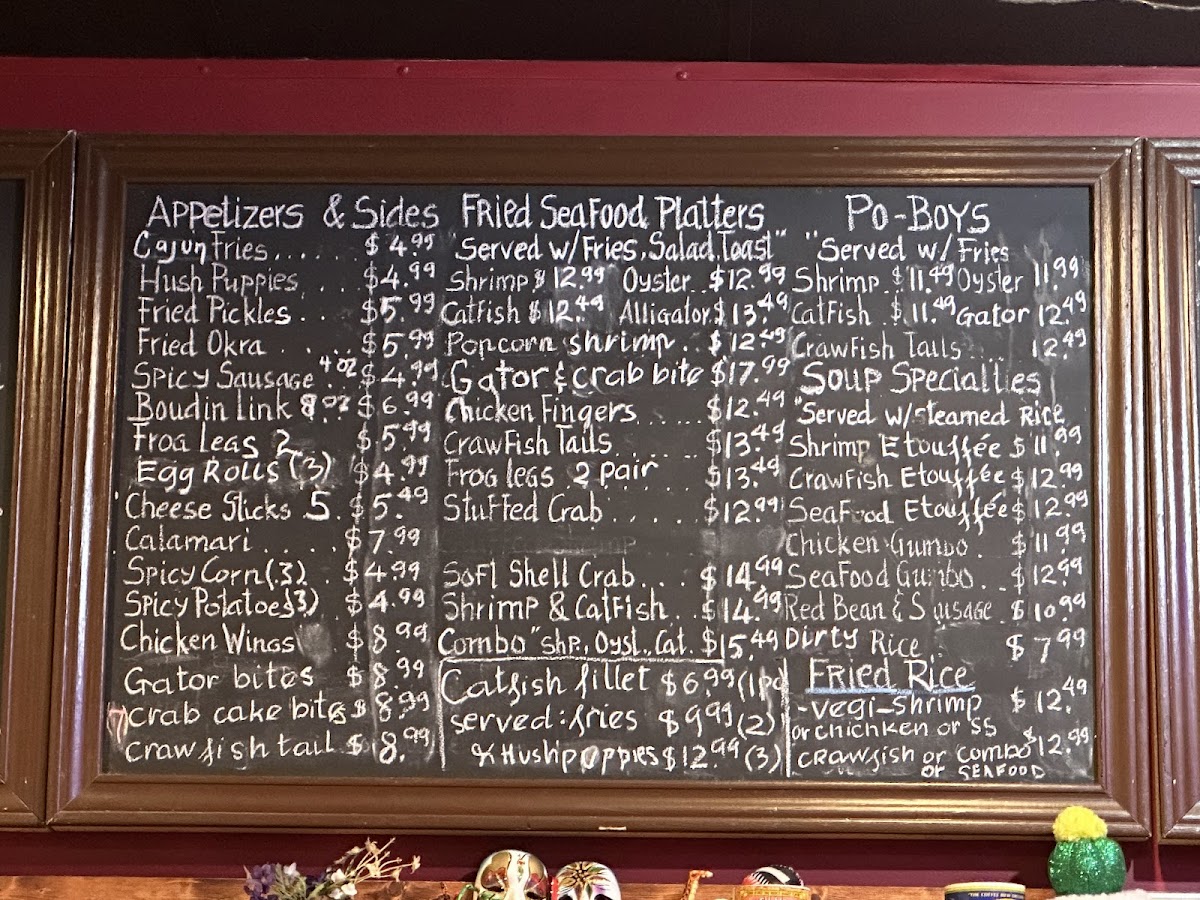 Appetizers & Sides
Cajun Fries...... $4.95
Hush Puppies.... $4.99
Fried Pickles... $5.99
Fried Okra..... $5.99
Spicy Sausage 4 oz $4.99
Boudin Link 8 oz $6.99
Frog Legs 2 $5.99
Egg Rolls (3) $4.99
Cheese Sticks 5. $5.49
Calamari..... $7.99
Spicy Corn (3). $4.99
Spicy Potatoes (3) $4.99
Chicken Wings $8.99
Gator bites $8.99
crab cake bites $8.99
crawfish tail $8.99
Fried Seafood Platters
"Served w/Fries, Salad, Toast"
Shrimp $12.99 Oyster.. $12.99
Catfish $12.49 Alligator. $13.49
Popcorn shrimp.. $12.49
Gator & crab bite $17.99
Chicken Fingers..... $12.49
Crawfish Tails...... $13.49
Frog legs 2 pair $13.49
Stuffed Crab..... $12.99
Soft Shell Crab... $14.99
Shrimp & Catfish.. $14.49
Combo "Shp., Oyst., Cat. $15.49
Catfish fillet $6.99 (1pc
served: fries $9.99 (2)
& Hushpuppies $12.99 (3)
Po-Boys
"Served w/ Fries
Shrimp. $11.49 Oyster 11.99
Catfish. $11.49 Gator 12.49
Crawfish Tails.... 12.49
Soup Specialties
"Served w/steamed Rice
Shrimp Etouffée $11.99
Crawfish Etouffée $12.99
Seafood Etouffée $12.99
Chicken Gumbo. $11.99
Seafood Gumbo. $12.99
Red Bean & Sausage $10.99
Dirty Rice. $7.99
Fried Rice
-vegi-shrimp $12.49
or chichken or ss
crawfish or combo $12.99
or SEAFOOD